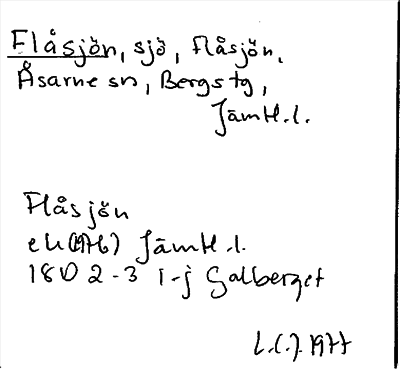 Flåsjön, sjö, Flåsjön,
Åsarne sn, Bergs tg,
Jämtl.l.
Flåsjön
ek(1976) Jämtl.l.
18D 2-3 i-j Galberget
L.C.J. 1977